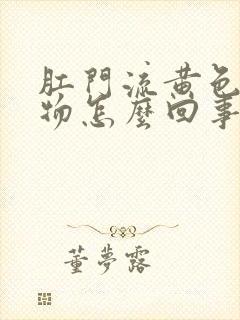 肛門流黃色
物怎麼回事
董夢露